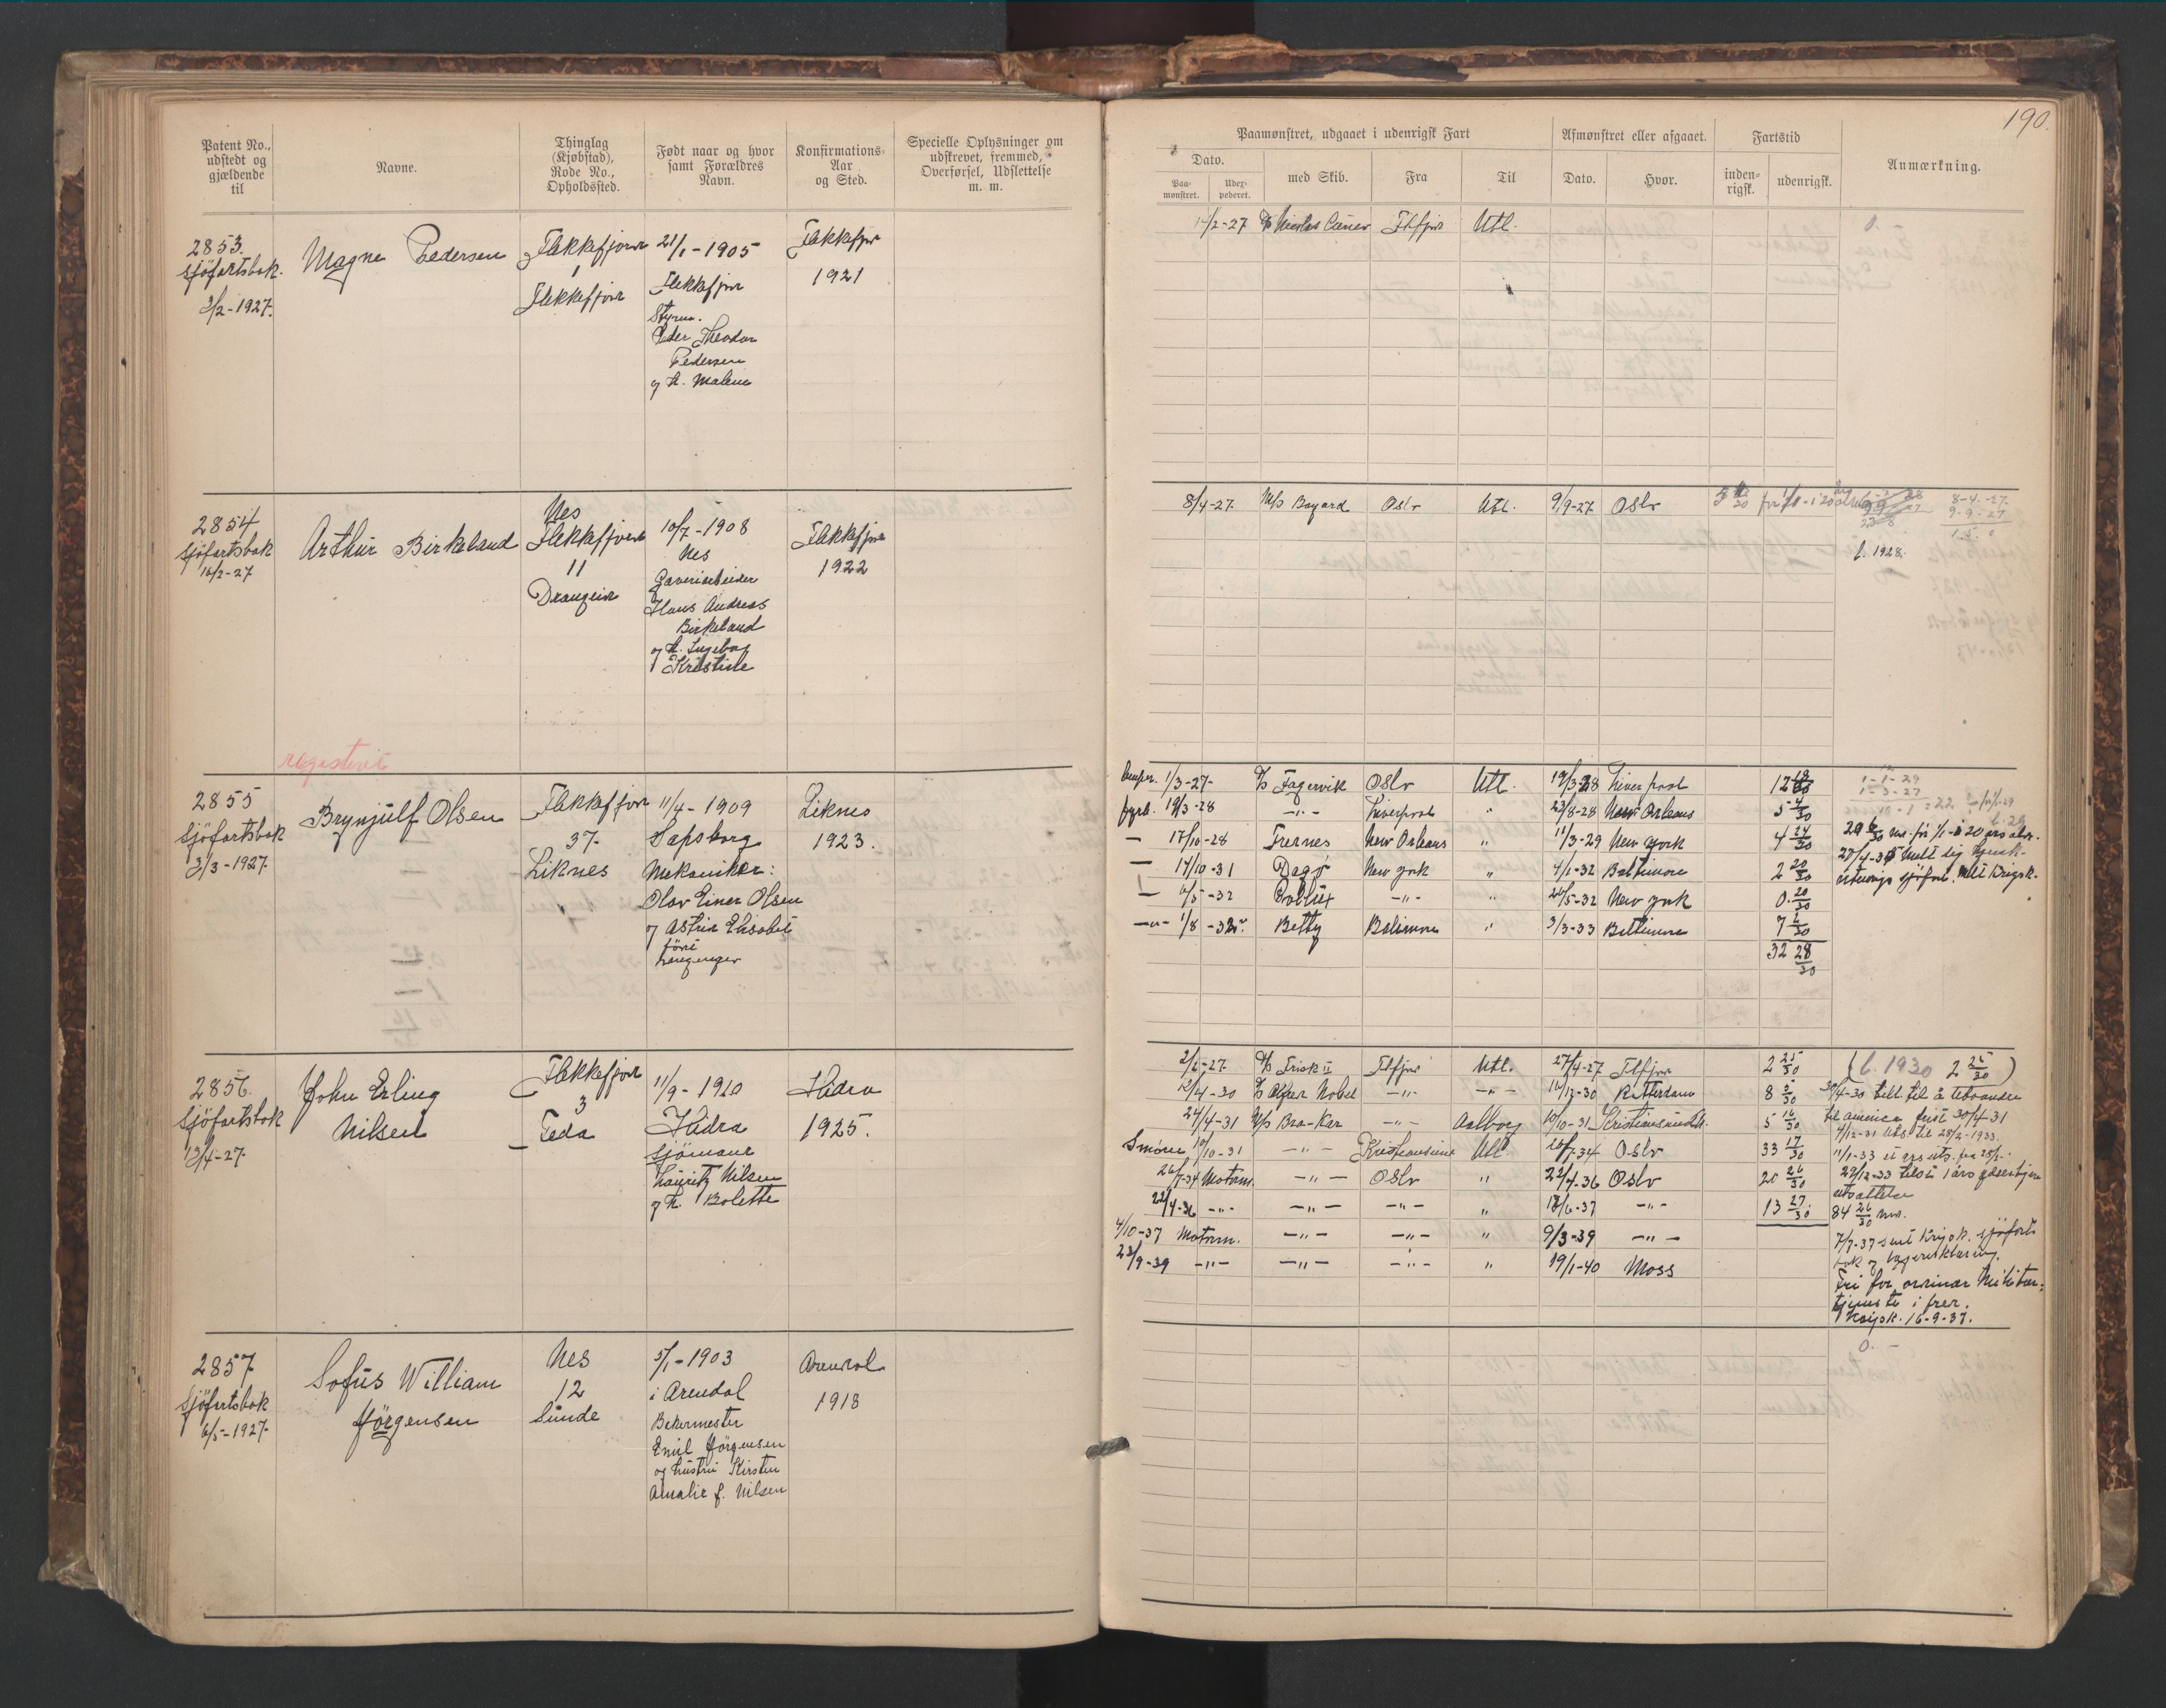 190.
Patent No., udstedt og gjældende til
Navne.
Thinglag (Kjøbstad), Rode No., Opholdssted.
Født naar og hvor samt Forældres Navn.
Konfirmations-Aar og Sted.
Specielle Oplysninger om udskrevet, fremmed, Overførsel, Udslettelse m. m.
Paamønstret, udgaaet i udenrigsk Fart
Dato.
Paa-mønstret.
Udex-pederet.
med Skib.
Fra
Til
Afmønstret eller afgaaet.
Dato.
Hvor.
Fartstid
inden-rigsk.
udenrigsk.
Anmærkning.
2853.
Sjöfartsbok.
3/2-1927.
Magne Pedersen
Flekkefjord
1
Flekkefjord
21/1-1905
Flekkefjord
Styrm.
Peder Theodor
Pedersen
og h. Malene
Flekkefjor
1921
Flfjor
Utl.
0.
2854
Sjöfartsbok
16/2-27
Arthur Birkeland
Nes
Flekkefjord
11
Drangeid
10/7-1908
Nes
Garveriarbeider
Hans Andreas
Birkeland
og h. Ingeborg
Kristine
Flekkefjor
1922
8/4-27. M/s Bayard Oslo Utl. 9/9-27 Oslo
8-4-27
9-9-27
1.5.0
l. 1928.
registrert
2855
Sjöfartsbok
3/3-1927.
Brynjulf Olsen
Flekkefjor
37-
Liknes
11/4-1909
Sapsborg
Mekaniker:
Olav Einer Olsen
og Astrid Elisabet
född
Liknes
1923.
1/3-27- Fagervik Oslo Utl. 19/3-28 Liverpool
19/3-28 -"- Liverpool " 23/8-28 New Orleans 5 4/30
— 17/10-28 Frernes New Orleans " 11/3-29 New York 4 24/30
— 17/10-31 Dagö New York " 4/1-32 Baltimore 2 20/30
— 6/5-32 Pollux -"- " 26/5-32 New York 0. 20/30
—"— 1/8-32 Betty " 3/3-33 Beltimore 7 2/30
32 28/30
29 6/30 mn. før 1/1-i 20 års alder.
2856.
Sjöfartsbok
13/4-27.
John Erling
Nilsen
Flekkefjord
3
Feda
11/9-1910
Hidra
Sjömann
Lauritz Nilsen
og h. Bolette
Hidra
1925.
2/2-27 Frisk II Flfjor Utl. 27/4-27 Flfjor 2 25/30
12/4-30 Alfred Nobel -"- -"- 16/12-30 Rotterdam 8 5/30
24/4-31 M/s Bra-Kar -"- Aalborg 10/10-31 Kristiansund 5 16/30
Smörer 10/10-31 -"- Kristiansund Utl 26/7-34 Oslo 33 17/30
26/7-34 Motorm. -"- Oslo " 22/4-36 Oslo 20 26/30
22/4-36 -"- -"- -"- " 18/6-37 -"- 13 27/30
4/10-37 Motorm. -"- -"- " 9/3-39 -"-
23/9-39 -"- -"- -"- " 19/1-40 Moss
(l. 1930 2 25/30)
til america frist 30/4-31
4/12-31 uts. til 28/2-1933.
utsettelse
84 26/30 mn.
7/7-37 sent Krigsk. sjöfarts
bok og lægeerklæring.
Fri for ordinær Militær-
tjeneste i fred.
Krigsk. 16-9-37.
2857
Sjöfartsbok
6/5-1927.
Sofus William
Jörgensen
Nes
12
Sunde
5/1-1903
i Arendal
Bakermester
Emil Jörgensen
og hustru Kirsten
Amalie f. Nilsen
Arendal
1918
0.-